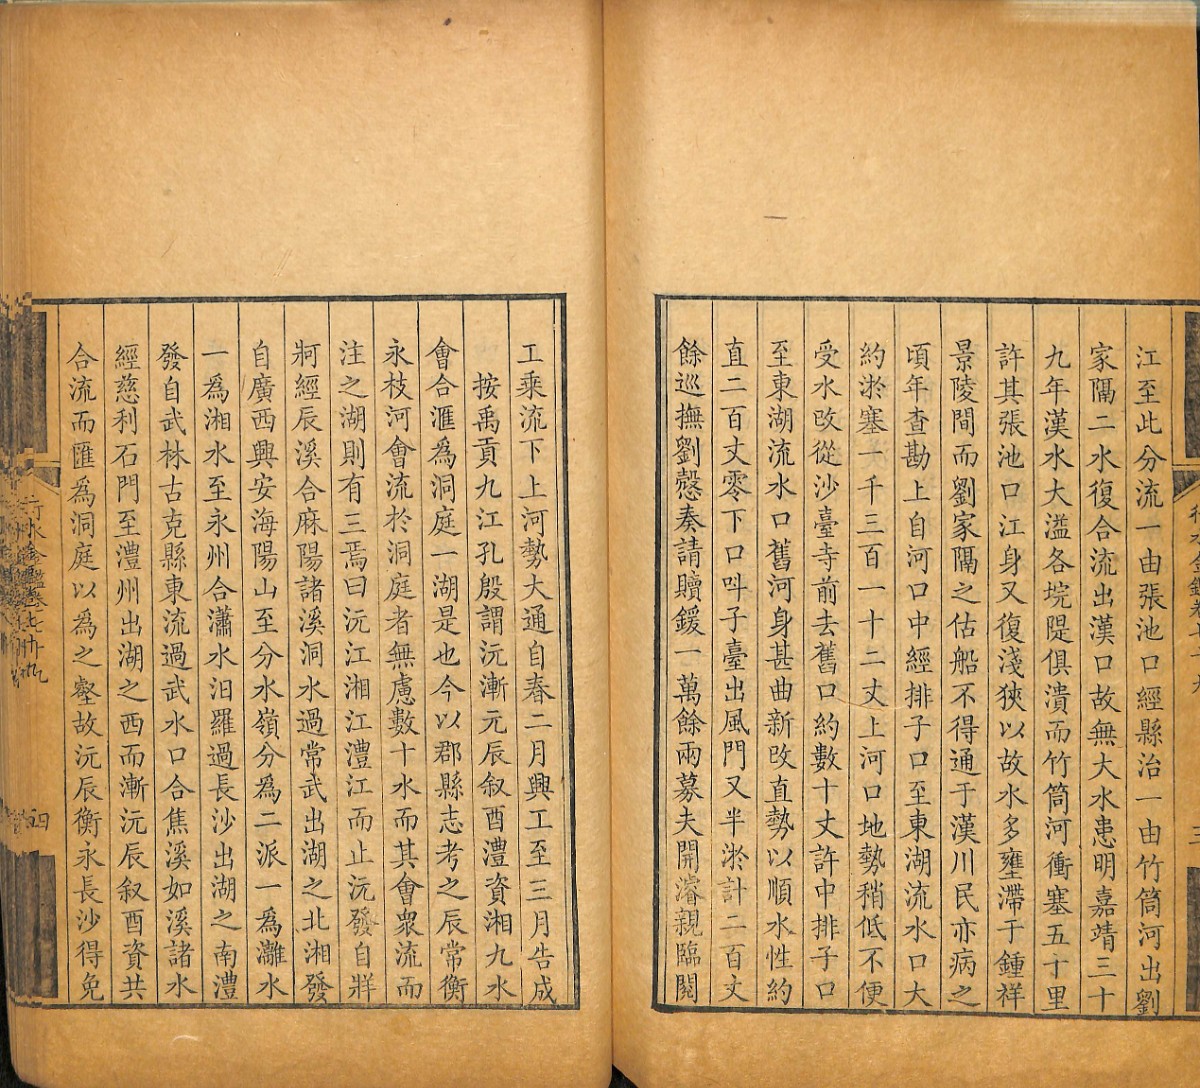 江至此分流一由張池口經縣治一由竹筒河出劉
家隔二水復合流出漢口故無大水患明嘉靖三十
九年漢水大溢各垸隄俱潰而竹筒河衝塞五十里
許其張池口江身又復淺狹以故水多壅滯于鍾祥
景陵間而劉家隔之估船不得通于漢川民亦病之
頃年查勘上自河口中經排子口至東湖流水口大
約淤塞一千三百一十二丈上河口地勢稍低不便
受水改從沙臺寺前去舊口約數十丈許中排子口
至東湖流水口舊河身甚曲新改直勢以順水性約
直二百丈零下口呌子臺出風門又半淤計二百丈
餘巡撫劉慤奏請贖鍰一萬餘兩募夫開濬親臨閱
工乘流下上河勢大通自春二月興工至三月告成
按禹貢九江孔殷謂沅漸元辰叙酉澧資湘九水
會合滙爲洞庭一湖是也今以郡縣志考之辰常衡
永枝河會流於洞庭者無慮數十水而其會衆流而
注之湖則有三焉曰沅江湘江澧江而止沅發自牂
牁經辰溪合麻陽諸溪洞水過常武出湖之北湘發
自廣西興安海陽山至分水嶺分爲二派一爲灕水
一爲湘水至永州合瀟水汨羅過長沙出湖之南澧
發自武林古克縣東流過武水口合焦溪如溪諸水
經慈利石門至澧州出湖之西而漸沅辰叙酉資共
合流而匯爲洞庭以爲之壑故沅辰衡永長沙得免
行水金鑑卷七十九
四